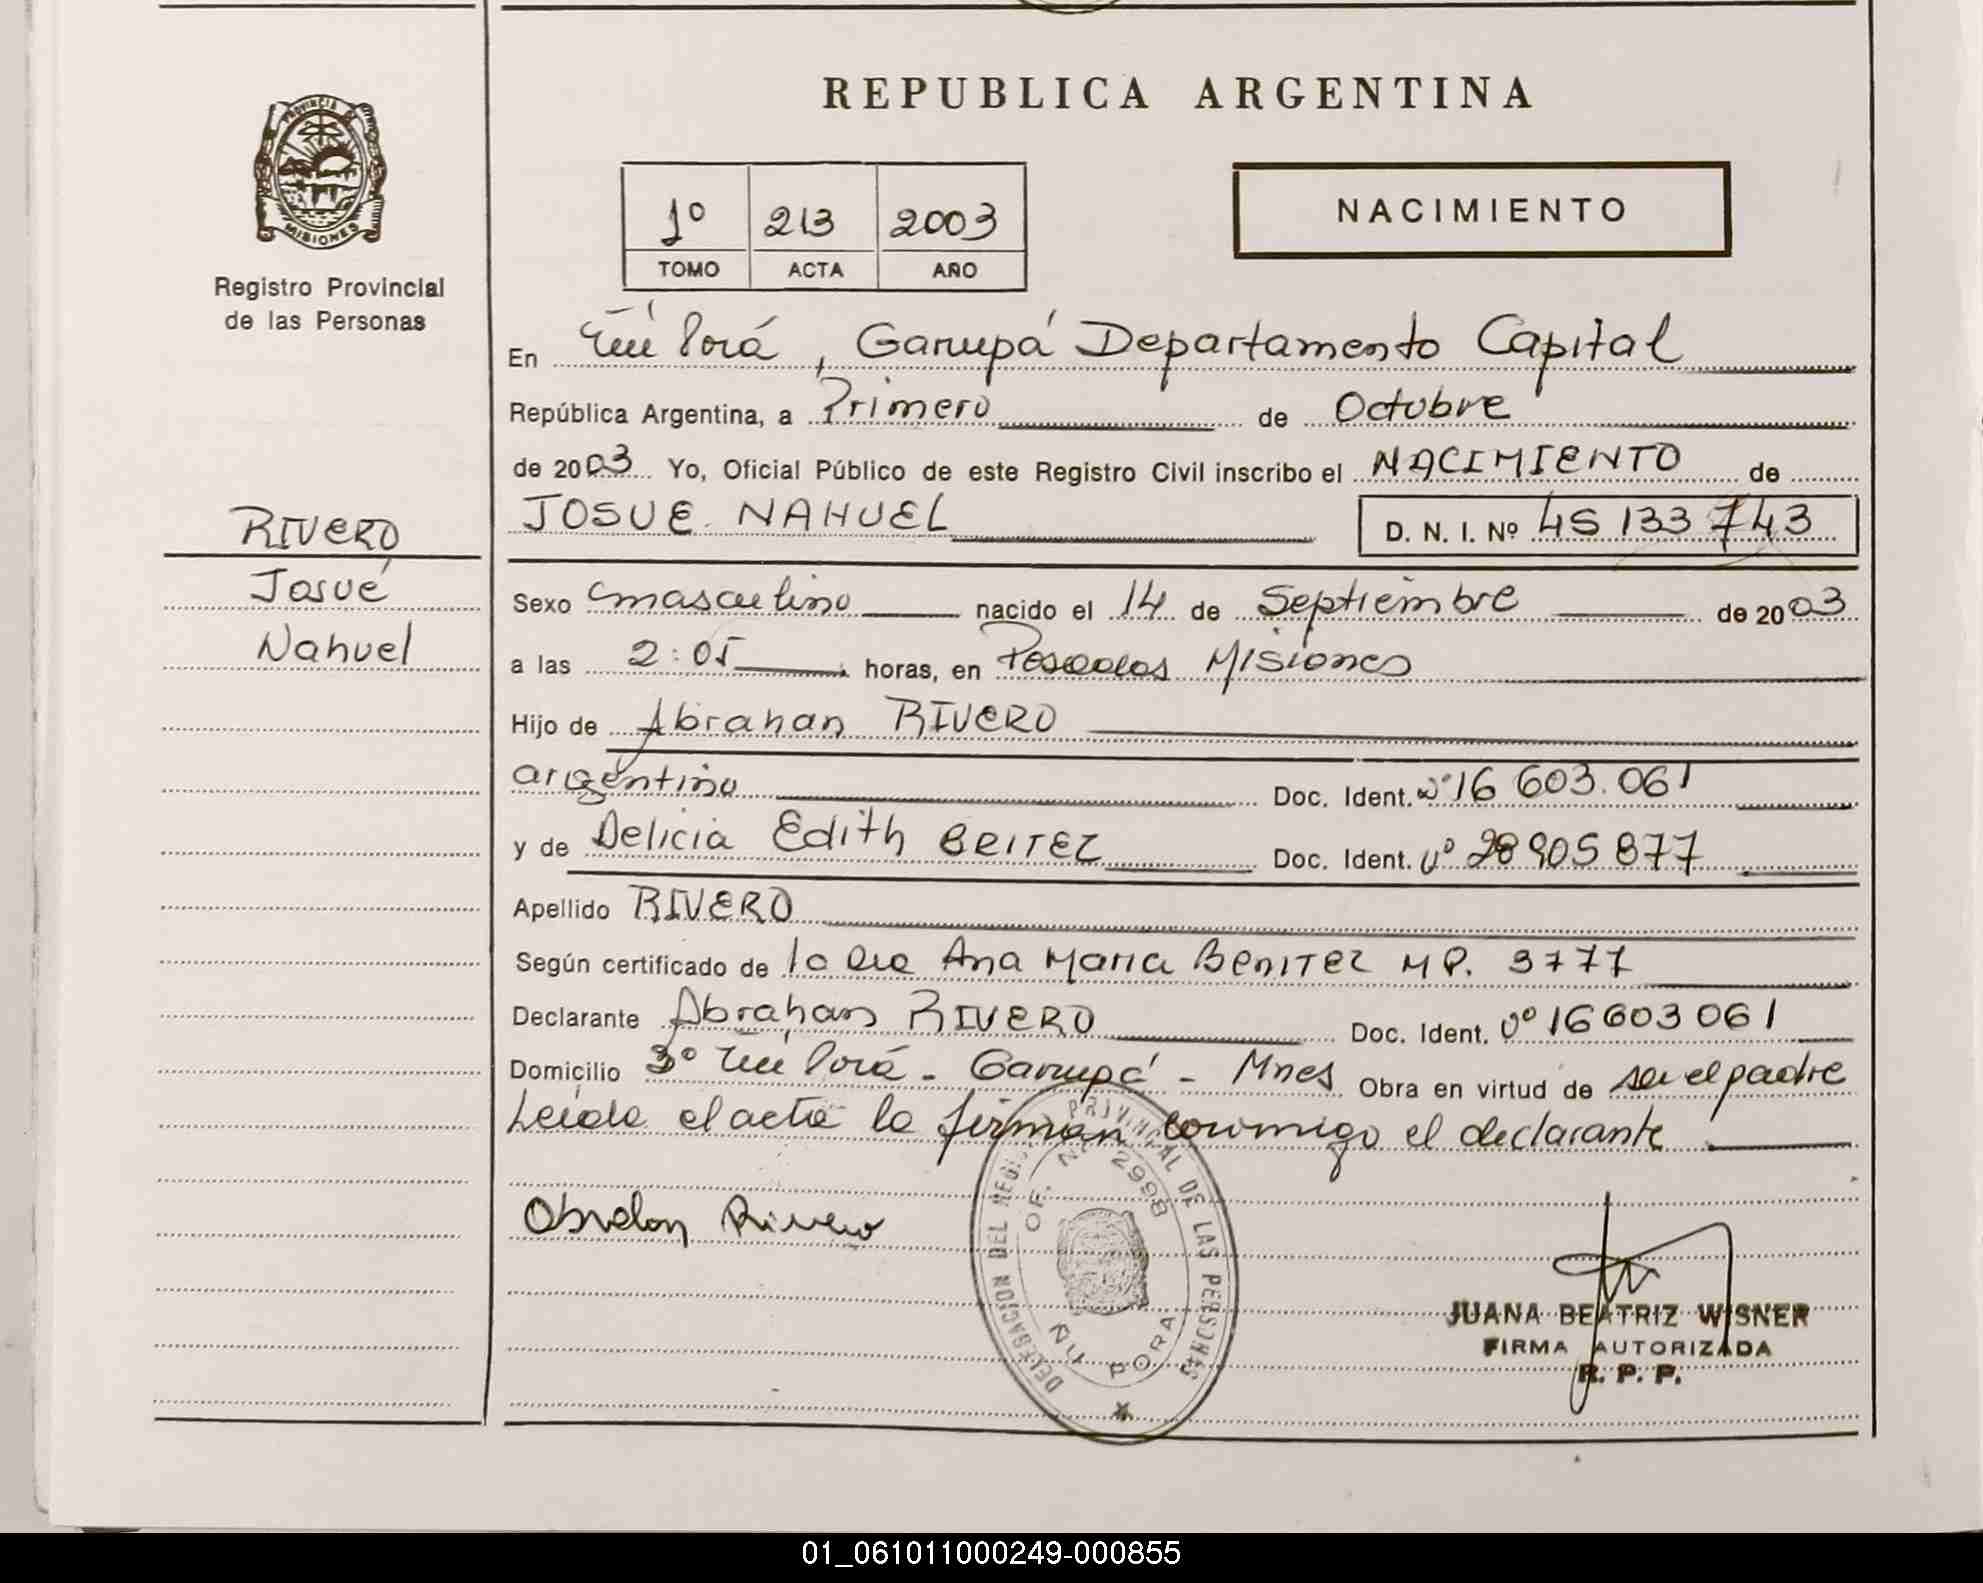 REPUBLICA ARGENTINA
PROVINCIA
MISIONES
Registro Provincial
de las Personas
1º 213 2003
TOMO ACTA AÑO
NACIMIENTO
En Ñú Porá, Garupá Departamento Capital
República Argentina, a Primero de Octubre
de 2003 Yo, Oficial Público de este Registro Civil inscribo el NACIMIENTO de
JOSUE NAHUEL D. N. I. Nº 45 133 743
RIVERO
Josué
Nahuel
Sexo masculino nacido el 14 de Septiembre de 2003
a las 2:05 horas, en Posadas Misiones
Hijo de Abrahan RIVERO
argentino Doc. Ident. Nº 16 603.061
y de Delicia Edith BRITEZ Doc. Ident. Nº 28 905 877
Apellido RIVERO
Según certificado de la Dra Ana Maria BENITEZ MP. 3777
Declarante Abrahan RIVERO Doc. Ident. Nº 16603061
Domicilio Bº Ñú Porá - Garupá - Mnes Obra en virtud de ser el padre
Leida el acta la firman conmigo el declarante
Rivero
DELEGACION DEL REGISTRO PROVINCIAL DE LAS PERSONAS
OF. Nº 2998
ÑU PORA
JUANA BEATRIZ WISNER
FIRMA AUTORIZADA
R. P. P.
01_061011000249-000855